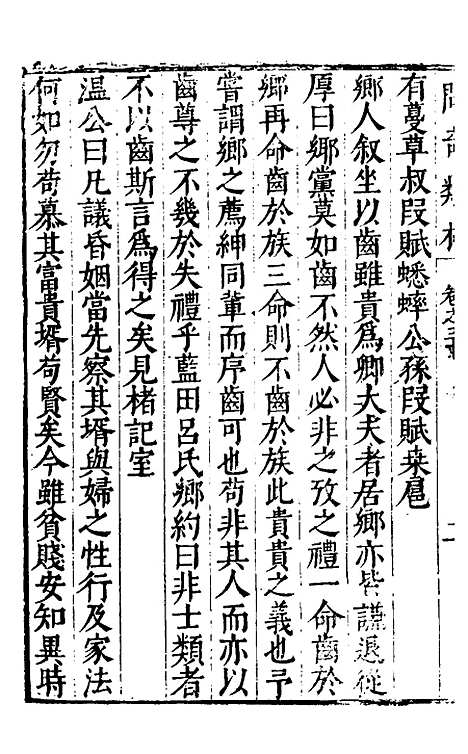 有蔓草叔段賦蟋蟀公孫段賦桒扈
鄉人叙坐以齒雖貴爲卿大夫者居鄉亦皆謙退從
厚曰鄉黨莫如齒不然人必非之攷之禮一命齒於
鄉再命齒於族三命則不齒於族此貴貴之義也予
嘗謂鄉之薦紳同輩而序齒可也苟非其人而亦以
齒尊之不幾於失禮乎藍田呂氏鄉約曰非士類者
不以齒斯言爲得之矣見楮記室
温公曰凡議昏姻當先察其壻與婦之性行及家法
何如勿苟慕其富貴壻苟賢矣今雖貧賤安知異時